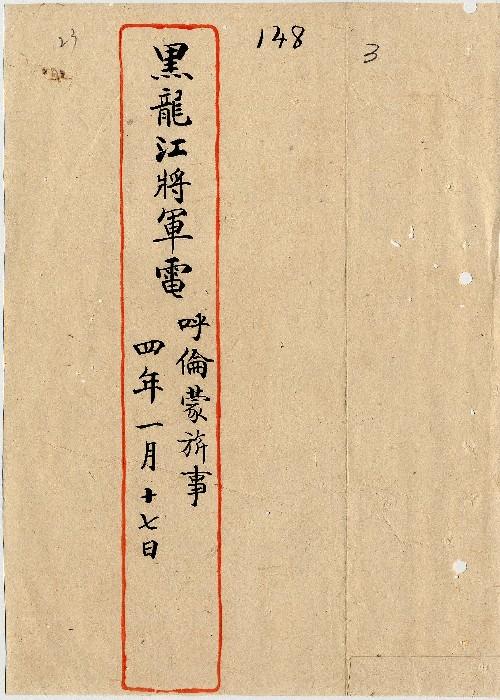 23
148
3
黑龍江將軍電
呼倫蒙旂事
四年一月十七日